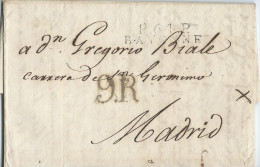 P.64.P.
BAYONNE
a dn Gregorio Biale
carrera de Sn Geronimo
9R
Madrid